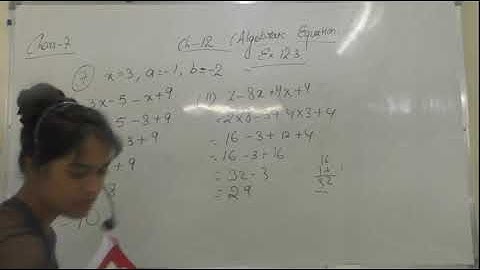 Class-7
Ch-12 (Algebraic Equation
Ex 12.3
7 x=3, a=-1, b=-2
3x-5-x+9
5-3+9
3+9
(ii) 2-8x+4x+4
=2×8-3+4×3+4
= 16-3+12+4
= 16-3+16
= 32-3
= 29
16
32